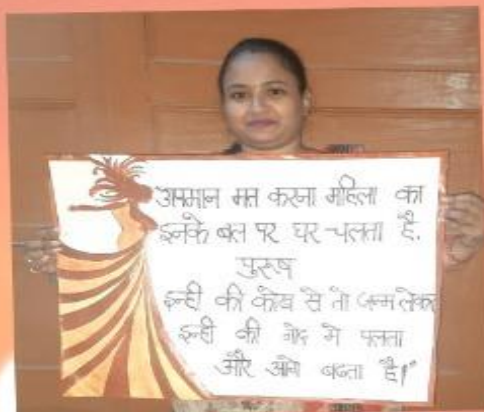 अपमान मत करना महिला का
इनके बल पर घर चलता है.
पुरूष
इन्ही की कोख से तो जन्म लेकर
इन्ही की गोद मे पलता
और आगे बढता है।"